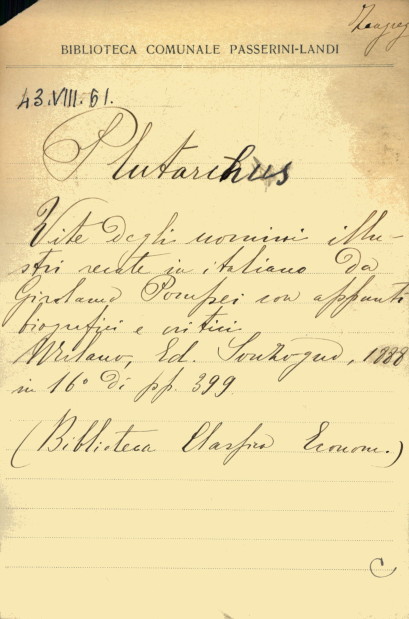 BIBLIOTECA COMUNALE PASSERINI-LANDI
43.VIII.61.
Plutarchus
Vite degli uomini illu-
stri recate in italiano da
Girolamo Pompei con appunti
biografici e critici
Milano, Ed. Sonzogno, 1888
in 16° di pp. 399
(Biblioteca Classica Econom.)
C